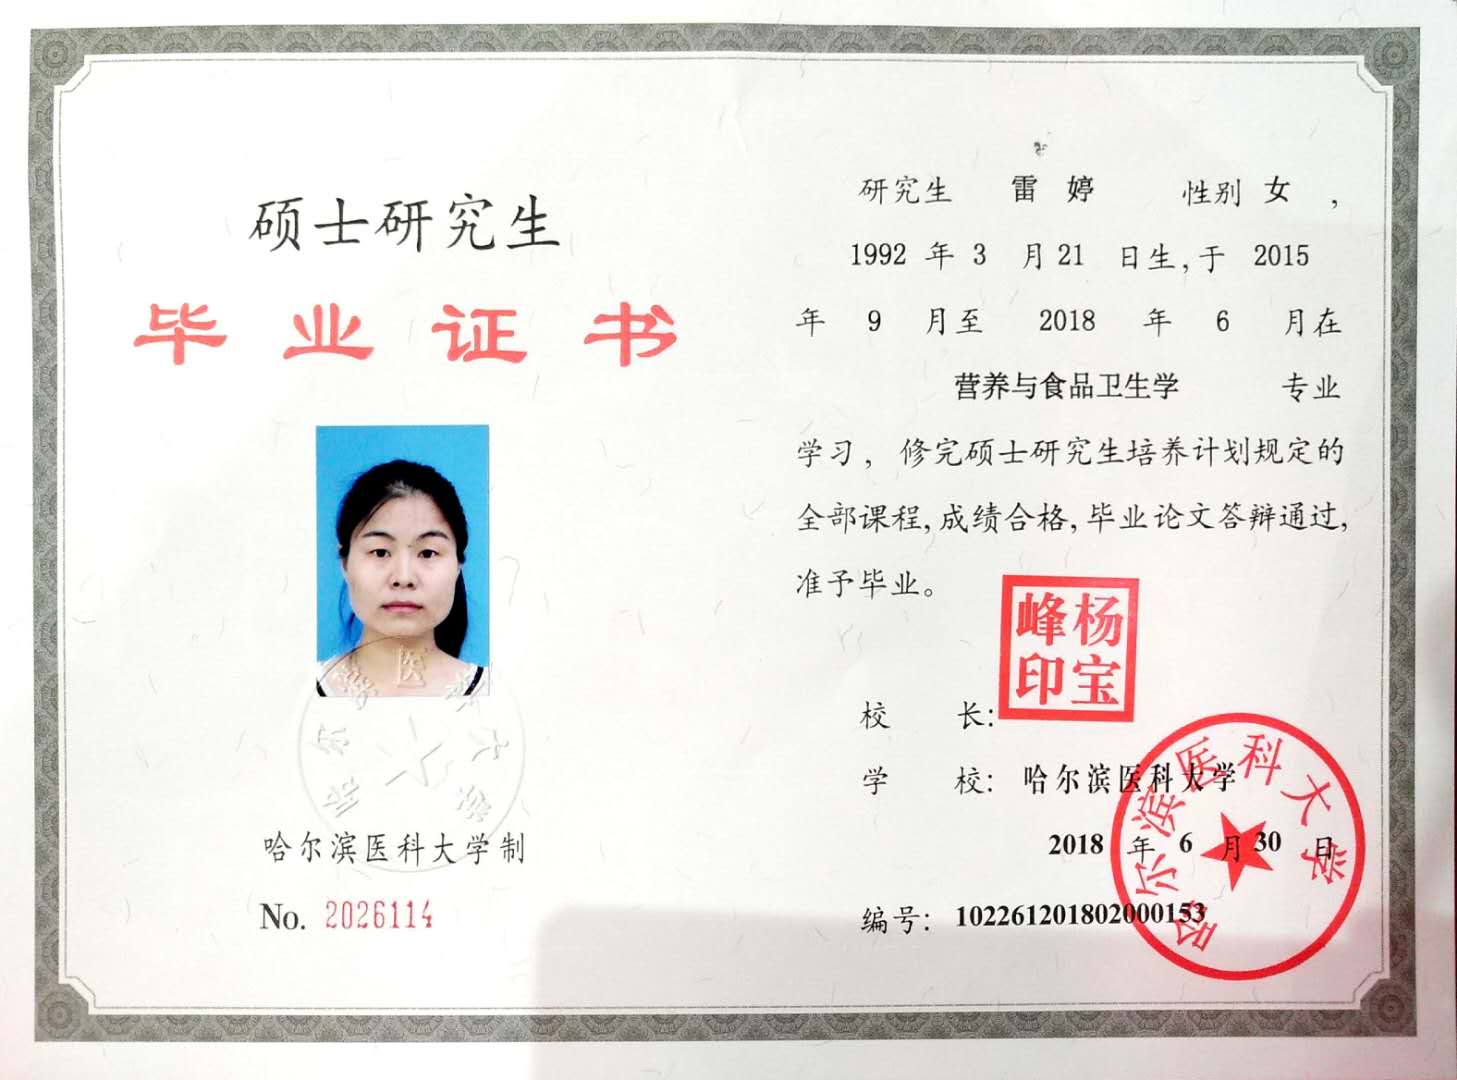 硕士研究生
毕业证书
哈尔滨医科大学
哈尔滨医科大学制
No. 2026114
研究生 雷婷 性别 女 ，
1992 年 3 月 21 日生，于 2015
年 9 月至 2018 年 6 月在
营养与食品卫生学 专业
学习，修完硕士研究生培养计划规定的
全部课程，成绩合格，毕业论文答辩通过，
准予毕业。
杨宝峰印
校 长：
学 校：哈尔滨医科大学
2018 年 6 月 30 日
编号：102261201802000153
哈尔滨医科大学